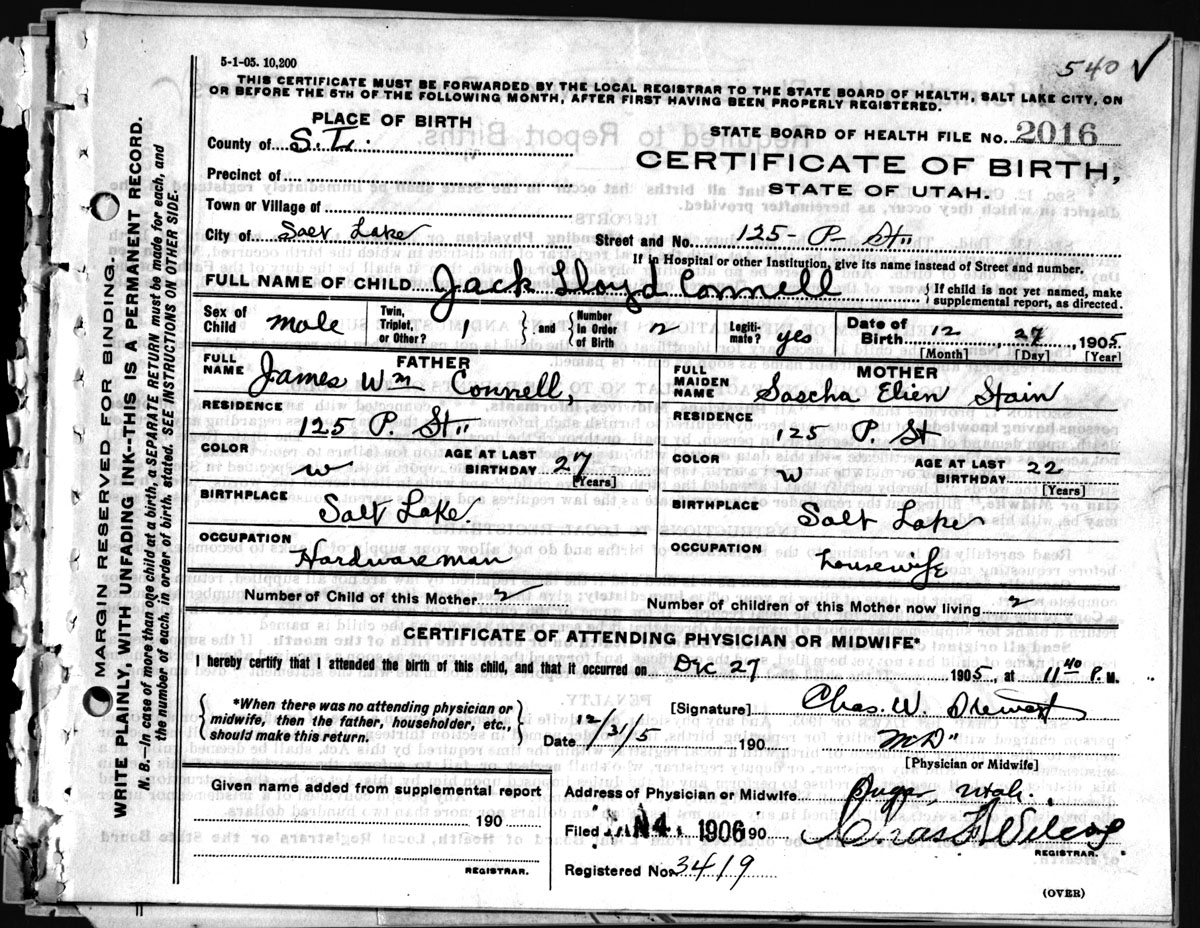 540 ✓
5-1-05. 10,200
THIS CERTIFICATE MUST BE FORWARDED BY THE LOCAL REGISTRAR TO THE STATE BOARD OF HEALTH, SALT LAKE CITY, ON
OR BEFORE THE 5TH OF THE FOLLOWING MONTH, AFTER FIRST HAVING BEEN PROPERLY REGISTERED.
PLACE OF BIRTH
STATE BOARD OF HEALTH FILE No. 2016
County of S. L.
CERTIFICATE OF BIRTH,
Precinct of
STATE OF UTAH.
Town or Village of
City of Salt Lake
Street and No. 125 - P - St
If in Hospital or other Institution, give its name instead of Street and number.
FULL NAME OF CHILD Jack Lloyd Connell { If child is not yet named, make supplemental report, as directed.
Sex of Child male Twin, Triplet, or Other? 1 } and { Number in Order of Birth 2 Legiti-mate? yes Date of Birth 12 27, 1905
[Month] [Day] [Year]
FATHER
FULL NAME James Wm Connell,
RESIDENCE
125 P. St
COLOR W AGE AT LAST BIRTHDAY 27
[Years]
BIRTHPLACE
Salt Lake.
OCCUPATION
Hardwareman
MOTHER
FULL MAIDEN NAME Stain
RESIDENCE
125 P. St
COLOR W AGE AT LAST BIRTHDAY 22
[Years]
BIRTHPLACE
Salt Lake
OCCUPATION
Housewife
Number of Child of this Mother 2 Number of children of this Mother now living 2
CERTIFICATE OF ATTENDING PHYSICIAN OR MIDWIFE*
I hereby certify that I attended the birth of this child, and that it occurred on Dec 27 1905, at 11 40 P. M.
{ *When there was no attending physician or midwife, then the father, householder, etc., should make this return. }
[Signature] Chas. W.
Date 12/31/5 190 MD
[Physician or Midwife]
Given name added from supplemental report
190
REGISTRAR.
Address of Physician or Midwife Utah.
Filed JAN 4 1906 190
REGISTRAR.
Registered No. 3419
(OVER)
MARGIN RESERVED FOR BINDING.
WRITE PLAINLY, WITH UNFADING INK--THIS IS A PERMANENT RECORD.
N. B.—In case of more than one child at a birth, a SEPARATE RETURN must be made for each, and
the number of each, in order of birth, stated. SEE INSTRUCTIONS ON OTHER SIDE.